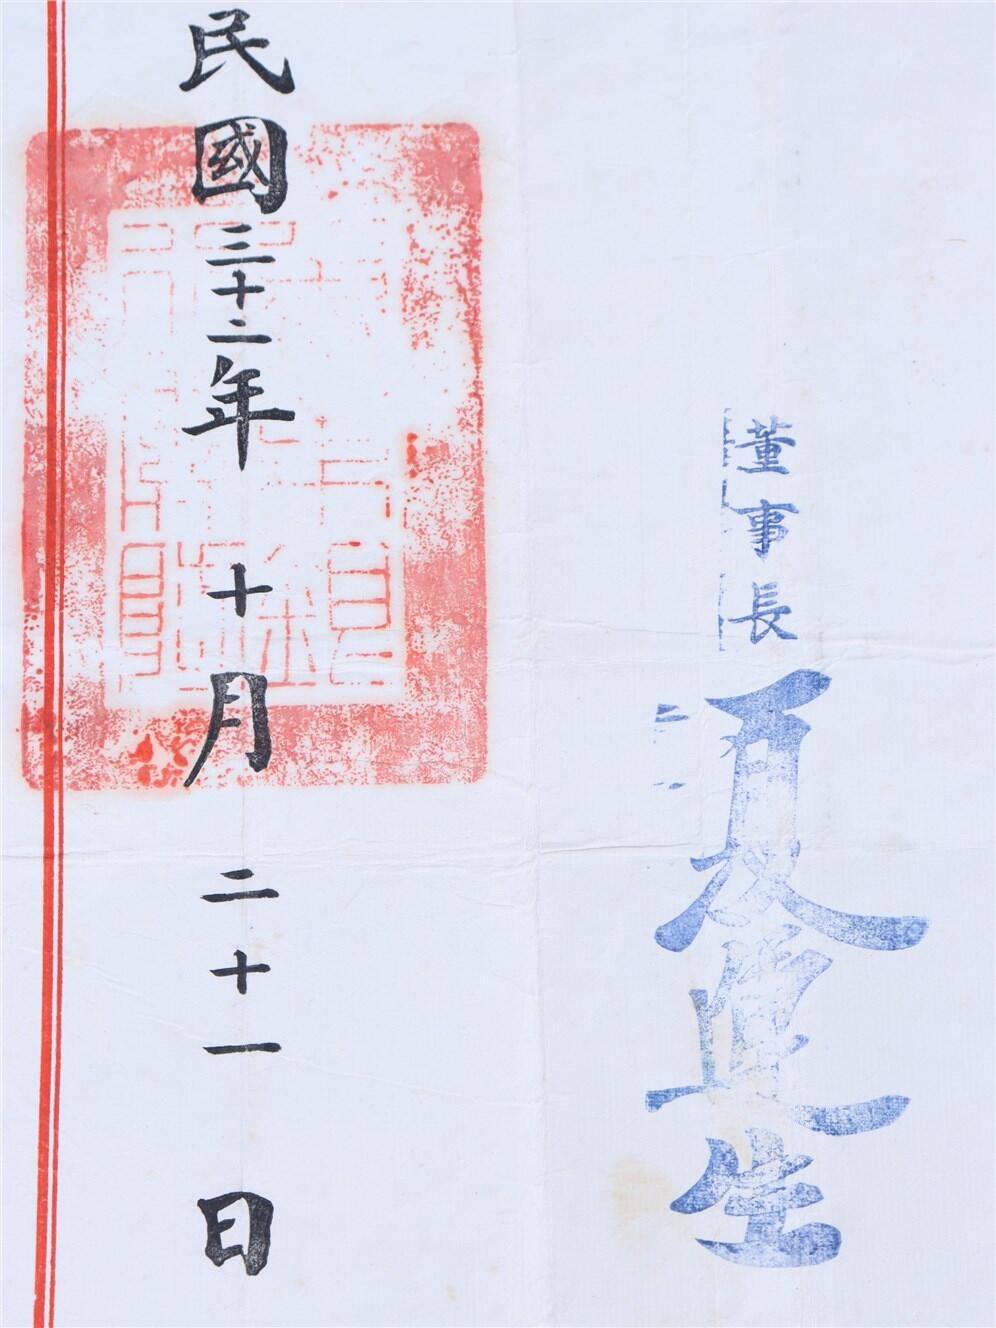 董事長 夏 生
民國三十二年 十月 二十一 日